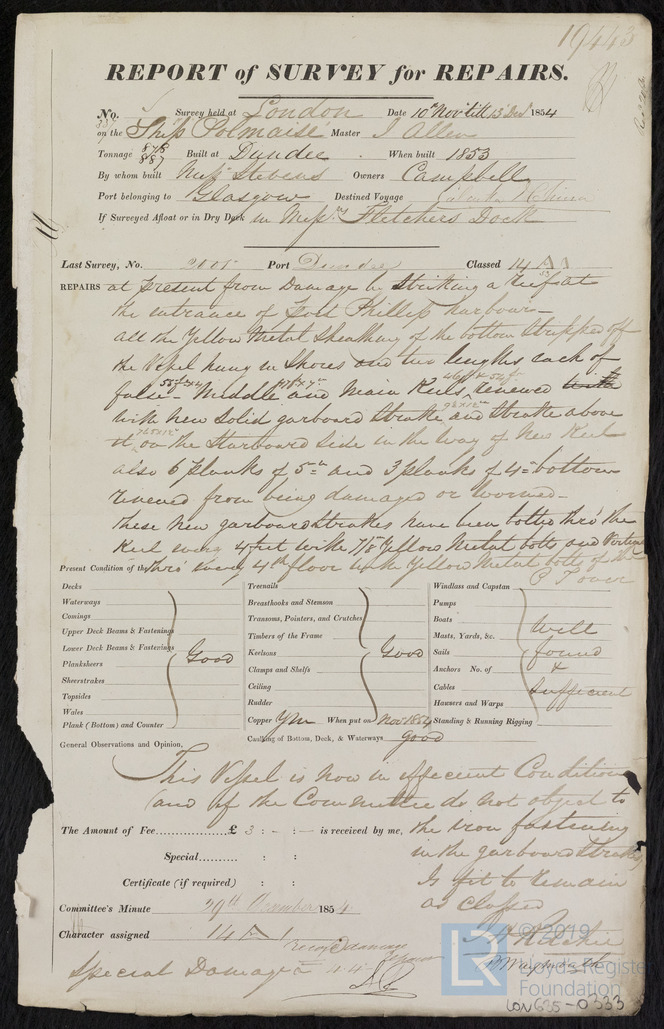 19443
REPORT of SURVEY for REPAIRS.
No. Survey held at London Date 10th Novr till 13th Decr 1854
on the Ship Polmaise Master J Allen
Tonnage 878 887 Built at Dundee When built 1853
By whom built Messrs Stevens Owners Campbell
Port belonging to Glasgow Destined Voyage
If Surveyed Afloat or in Dry Dock in Messrs Fletchers Dock
Last Survey, No. 2001 Port Dundee Classed 14 A 1
REPAIRS at present from Damage by Striking a Reef at
the entrance of Port Phillip harbour
all the Yellow Metal Sheathing of the bottom Stripped off
the Vessel hung in Shores and two lengths each of
false Middle and Main Keels renewed
with new solid garboard Strake and Strake above
it on the Starboard Side in the way of New Keel
also 6 planks of 5 in and 3 planks of 4 in bottom
renewed from being damaged or wormed
These new garboard Strakes have been bolted thro' the
Keel every 4 feet with 7/8 Yellow Metal bolts and
thro' every 4th floor with Yellow Metal bolts of the
Present Condition of the
Decks
Waterways
Comings
Upper Deck Beams & Fastenings
Lower Deck Beams & Fastenings
Planksheers
Sheerstrakes
Topsides
Wales
Plank (Bottom) and Counter
Good
Treenails
Breasthooks and Stemson
Transoms, Pointers, and Crutches
Timbers of the Frame
Keelsons
Clamps and Shelfs
Ceiling
Rudder
Good
Copper YM When put on Novr 1854
Caulking of Bottom, Deck, & Waterways good
Windlass and Capstan
Pumps
Boats
Masts, Yards, &c.
Sails
Anchors No. of
Cables
Hausers and Warps
Standing & Running Rigging
Well
found
&
Sufficient
General Observations and Opinion,
This Vessel is now in efficient Condition
and if the Committee do not object to
The Amount of Fee £ 3 : - : - is received by me, the iron fastening
Special : : in the garboard Strakes
Certificate (if required) : : Is fit to remain
as Classed
Committee's Minute 29th December 1854
Character assigned 14 A 1
Special Damage
J H Ritchie
© 2019
LR
Lloyd's Register
Foundation
LON635-0333